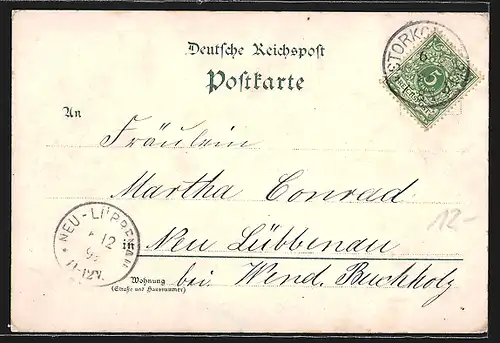 Deutsche Reichspost
Postkarte
STORKO
5
An
Fräulein
Martha Conrad
12-
NEU-LÜBBENAU
12
9
11-12V.
in Neu Lübbenau
Wohnung
(Straße und Hausnummer)
bei Wend. Buchholz